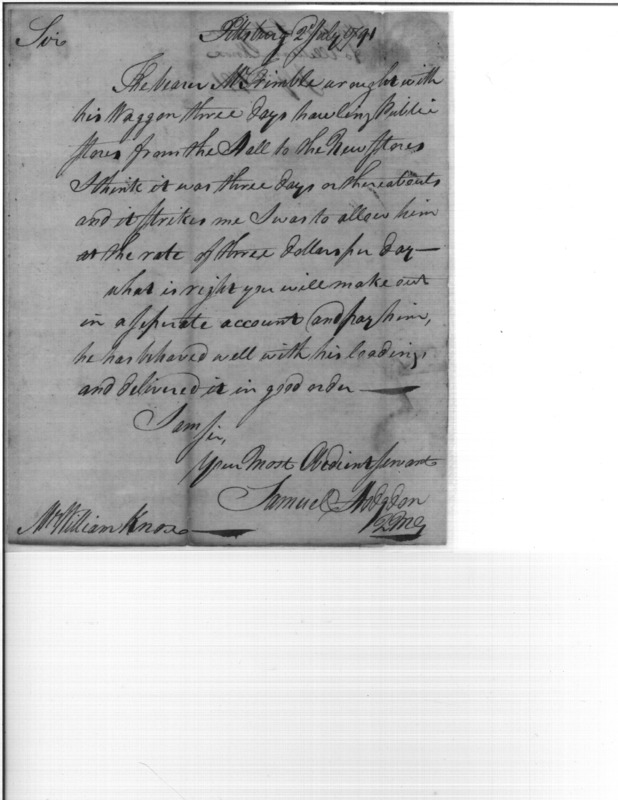 Sir Pittsburg 2d July 1791
The bearer Mr Trimble wrought with
his Waggon three days hawling Public
Stores from the Stall to the New Stores
I think it was three days or thereabouts
and it strikes me I was to allow him
at the rate of three dollars per day—
what is right you will make out
in a seperate account and pay him,
he has behaved well with his loading,
and delivered it in good order—
I am
Sir,
Your Most Obedient Servant
Samuel Hodgdon
QMG
Mr William Knox